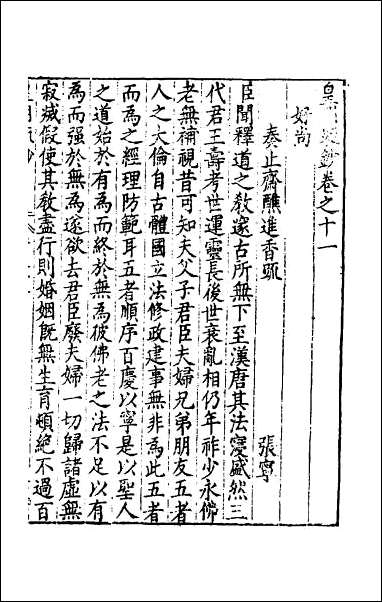 皇明疏鈔卷之十一
好尚
奏止齋醮進香疏
張寧
臣聞釋道之教邃古所無下至漢唐其法寖盛然三
代君王壽考世運靈長後世衰亂相仍年祚少永佛
老無補視昔可知夫父子君臣夫婦兄弟朋友五者
人之大倫自古體國立法修政建事無非為此五者
而為之經理防範耳五者順序百慶以寧是以聖人
之道始於有為而終於無為彼佛老之法不足以有
為而强於無為遂欲去君臣廢夫婦一切歸諸虛無
寂滅假使其教盡行則婚姻旣無生育頓絕不過百